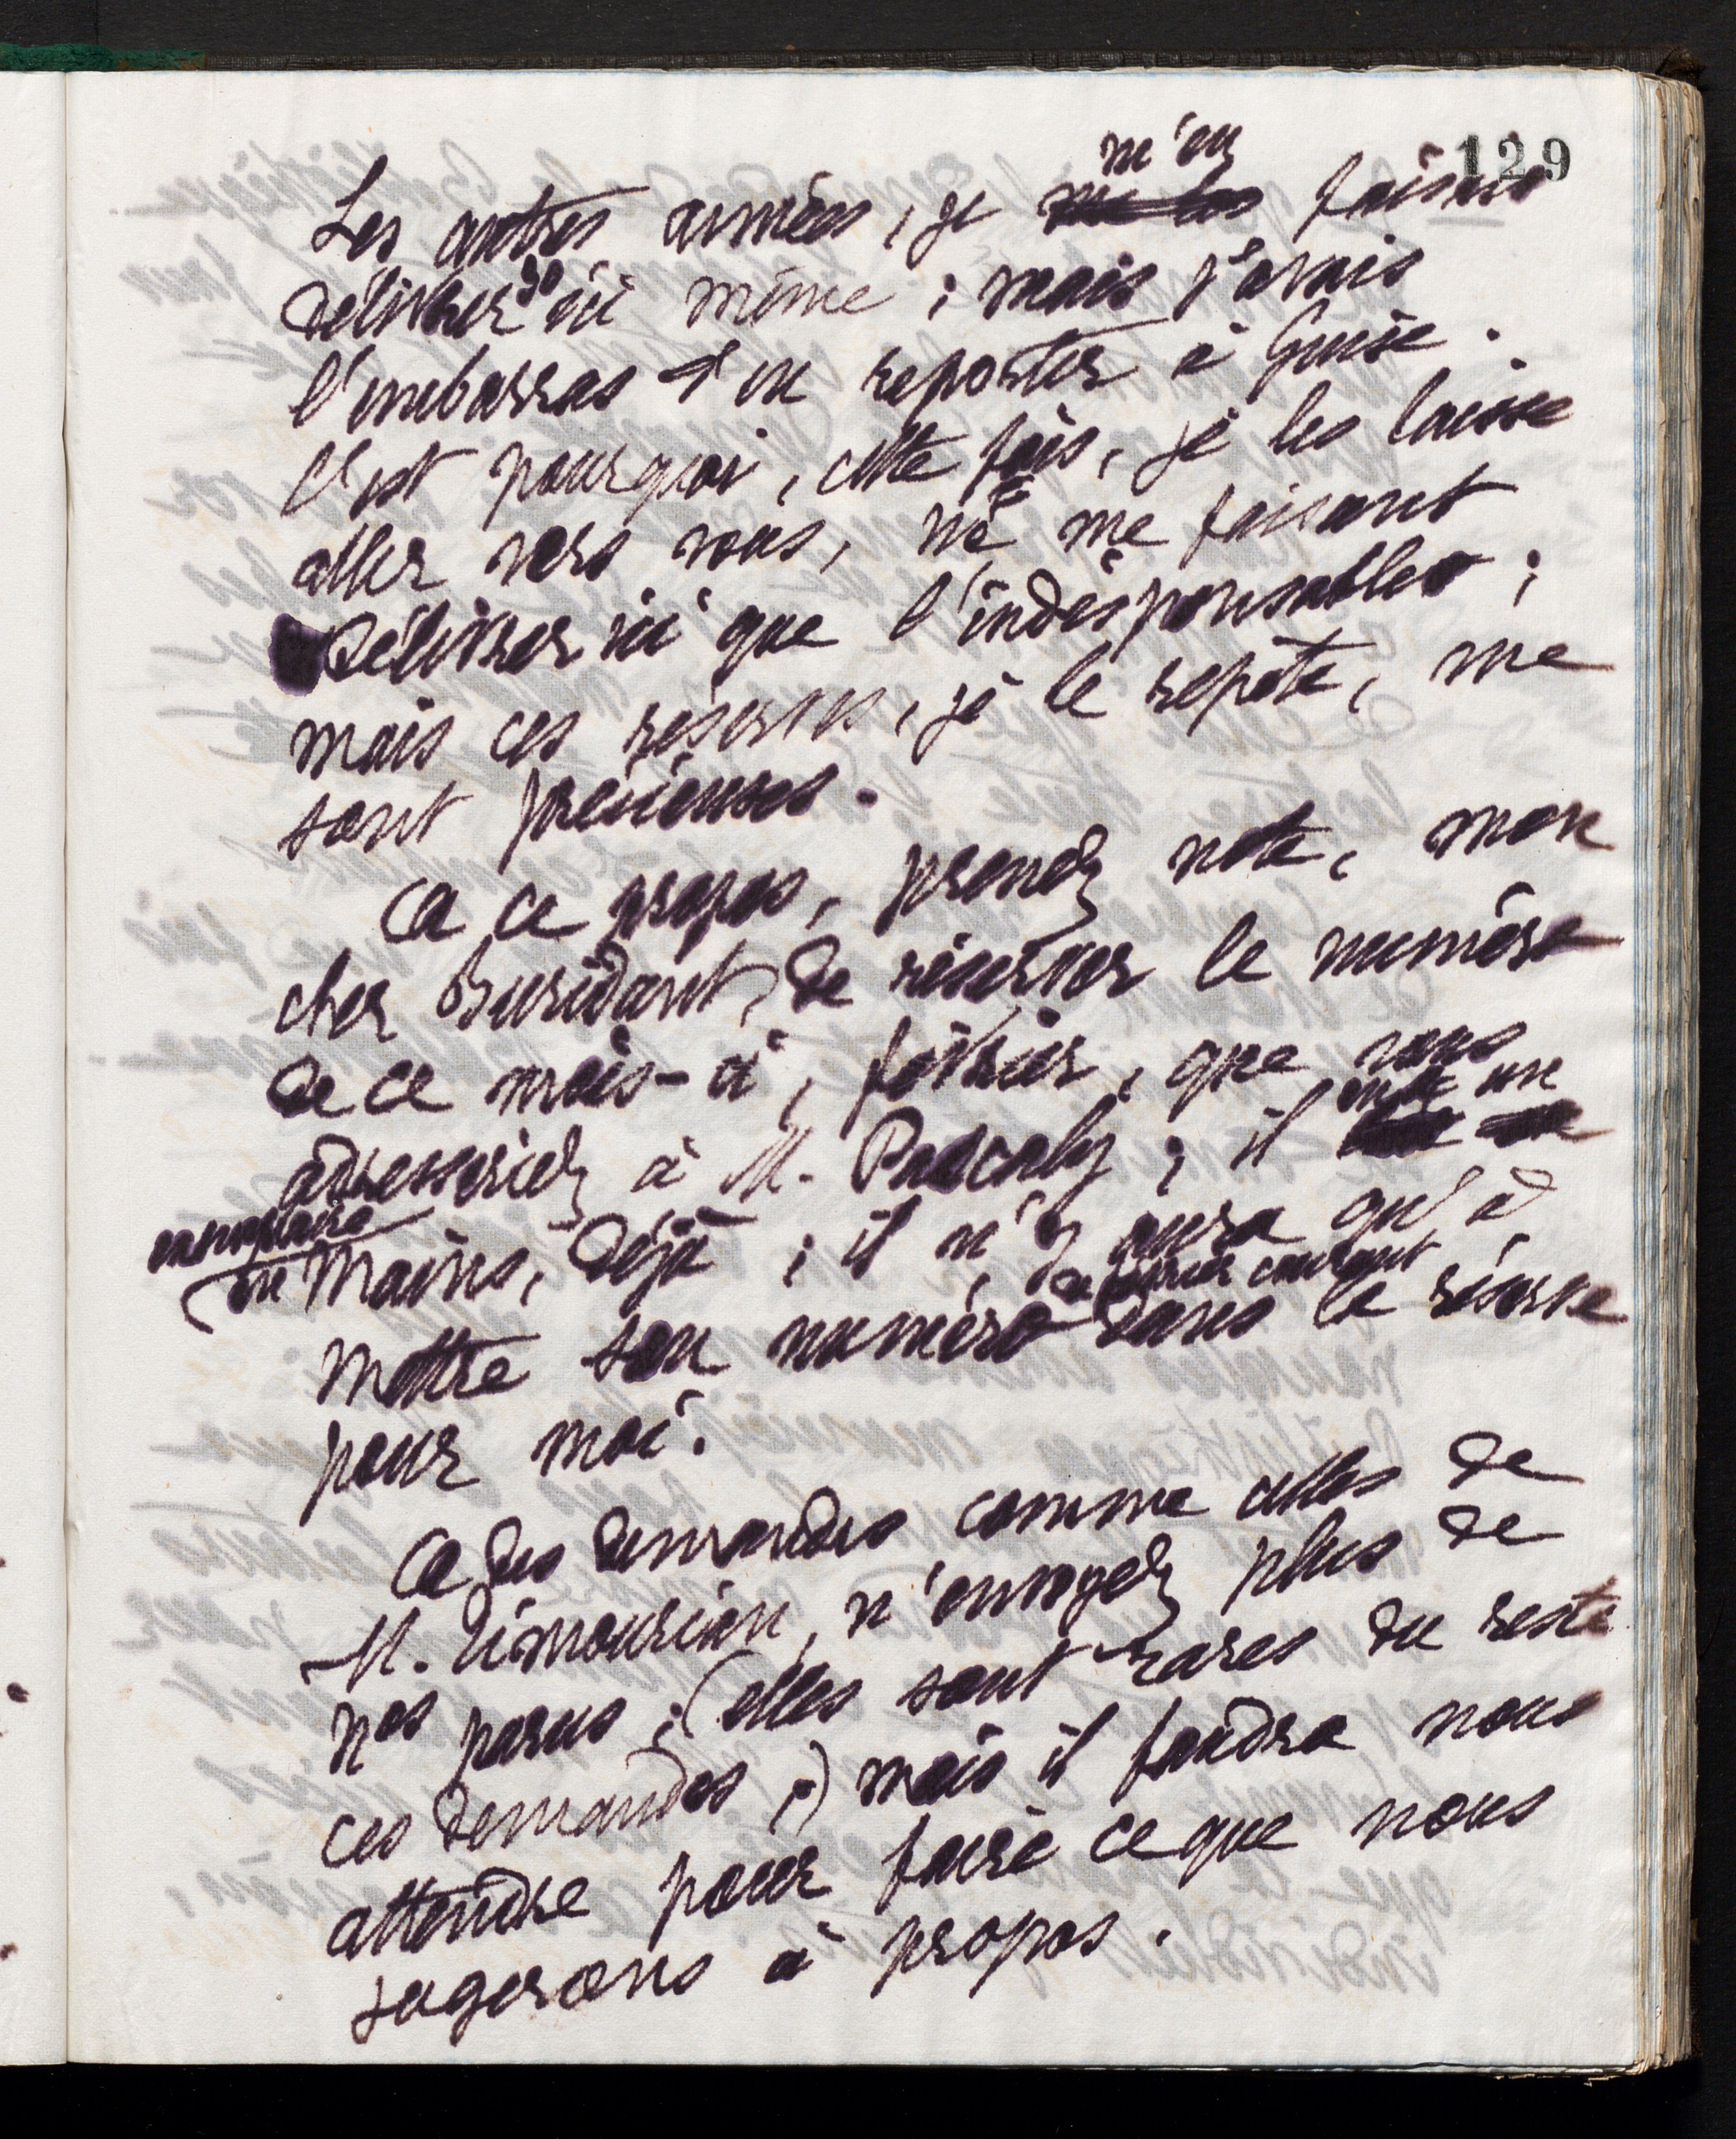 129
Les autres années, je m'en faisais
délivrer 30 ici même ; mais j'avais
l'embarras d'en reporter à Guise.
C'est pourquoi, cette fois, je les laisse
aller vers vous, ne me faisant
délivrer ici que l'indispensable ;
mais ces réserves, je le repète, me
sont précieuses.
A ce propos, prenez note, mon
cher Buridant, de réserver le numéro
de ce mois-ci, février, que vous
adresseriez à M. Pascaly ; il en a un
exemplaire
en mains, déjà ; il n'y aura qu'à
de février courant
mettre son numéro dans la réserve
pour moi.
A des demandes comme celles de
M. Limousin, n'envoyez plus de
nos parus ; (elles sont rares du reste
ces demandes ;) mais il faudra nous
attendre pour faire ce que nous
jugerons à propos.